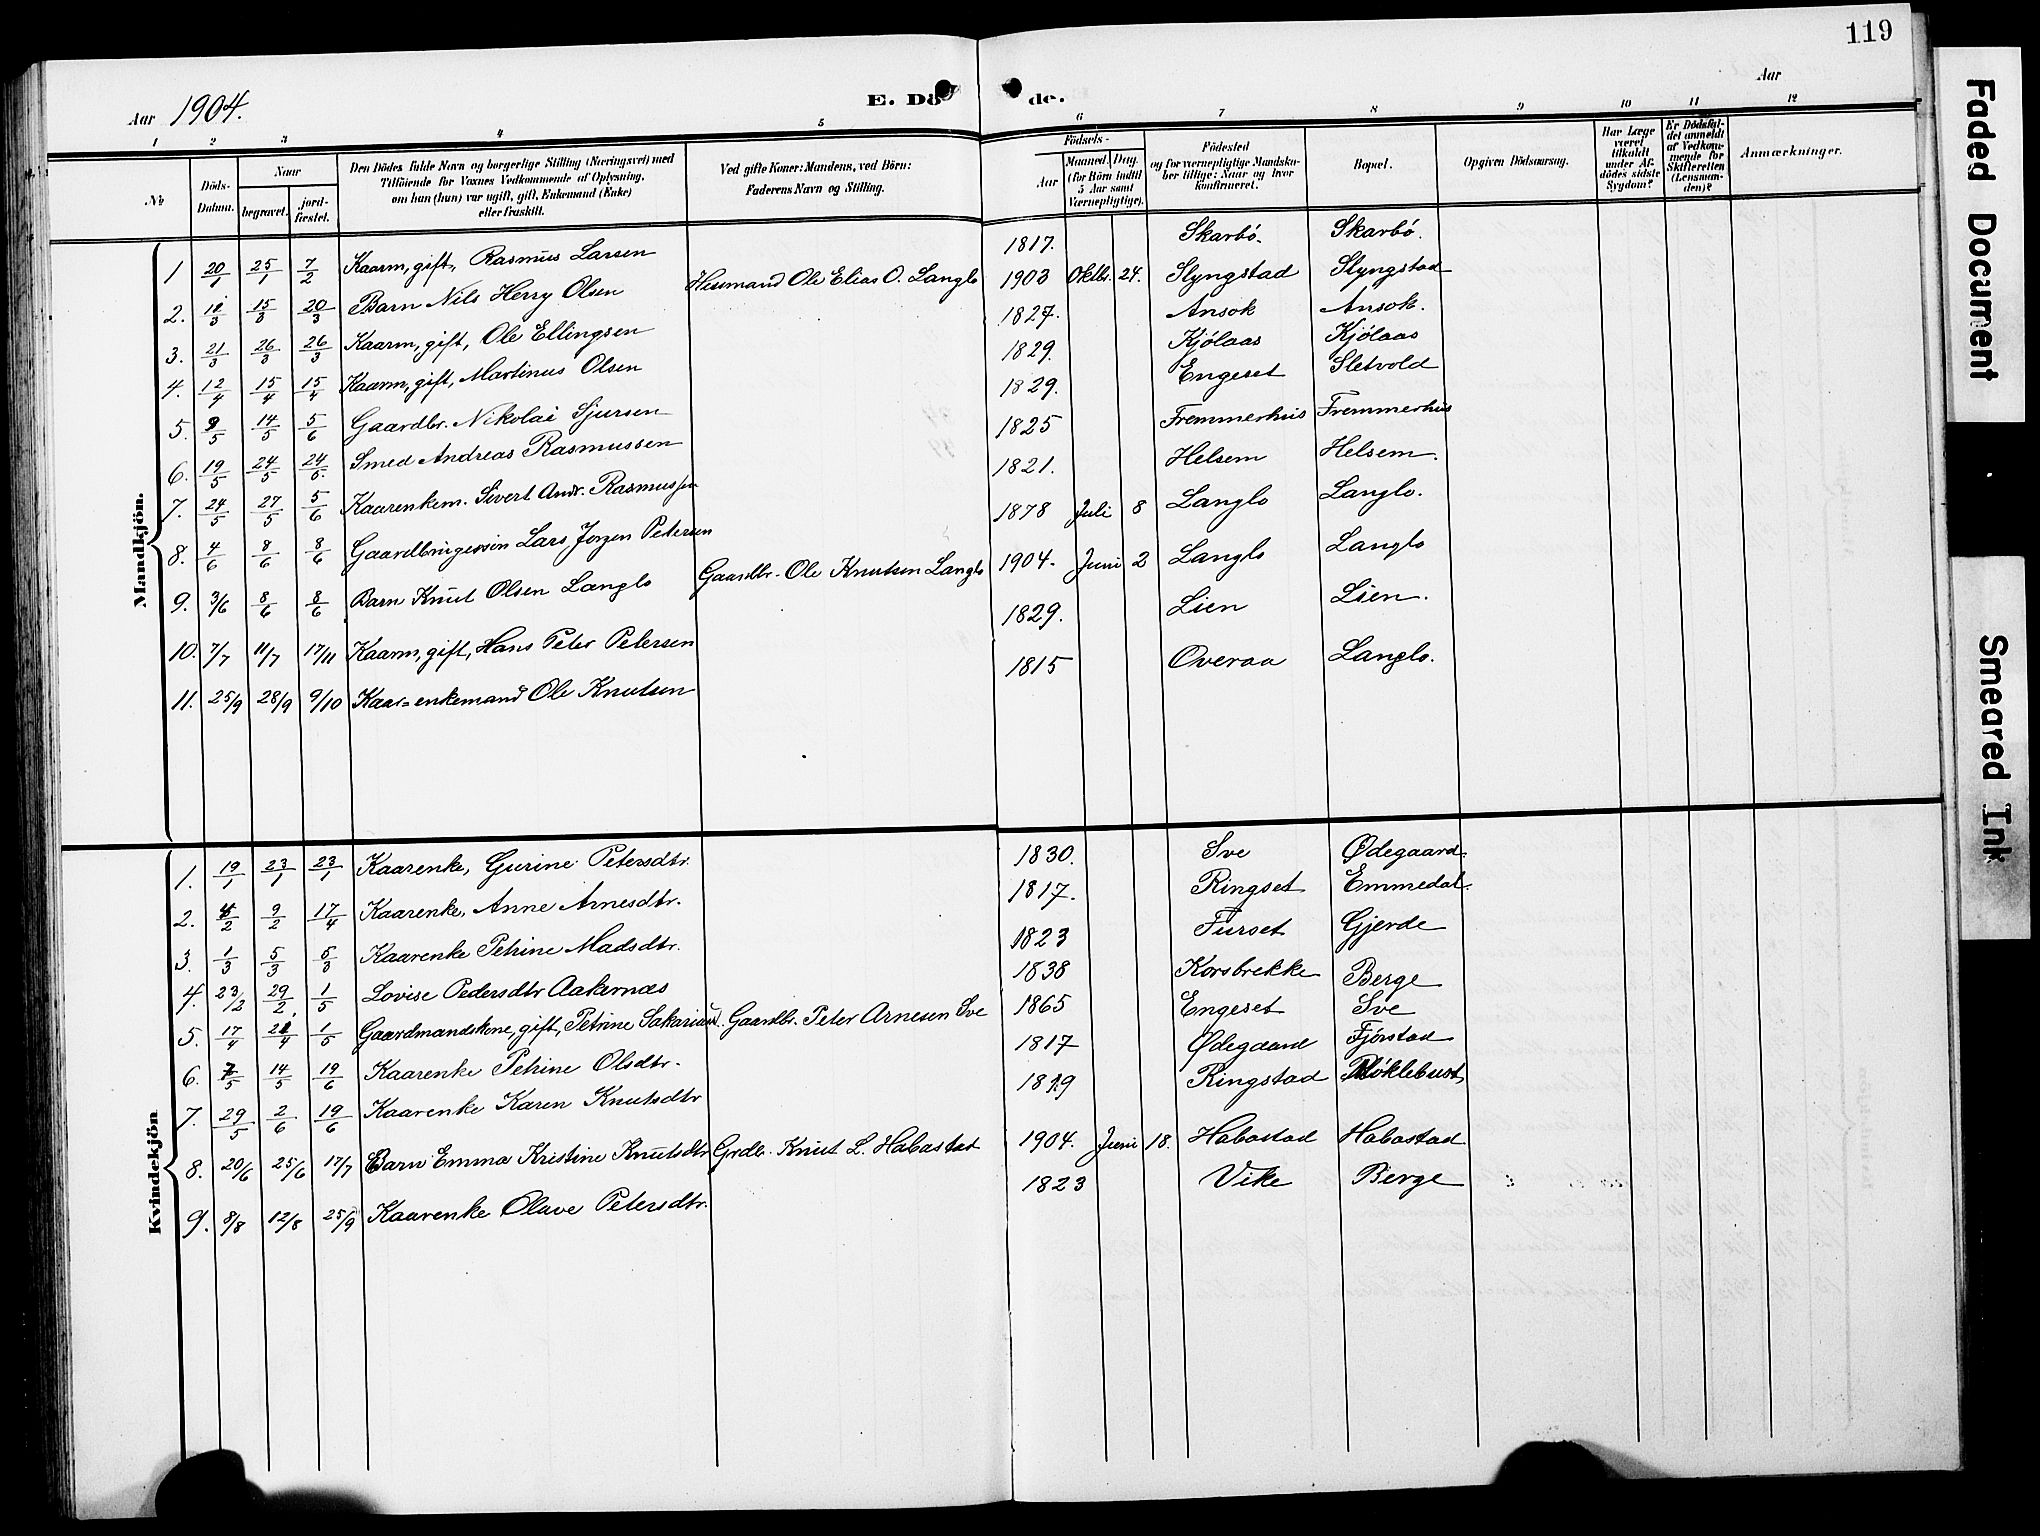 119
Aar 1904.
E. Dö de.
Aar
1 2 3 4 5 6 7 8 9 10 11 12
№
Döds-Datum.
Naar
begravet.
jord-fæstet.
Den Dödes fulde Navn og borgerlige Stilling (Næringsvei) med
Tilföiende for Voxnes Vedkommende af Oplysning,
om han (hun) var ugift, gift, Enkemand (Enke)
eller fraskilt.
Ved gifte Koner: Mandens, ved Börn:
Faderens Navn og Stilling.
Födsels-
Aar
Maaned. Dag.
(for Börn indtil
5 Aar samt
Værnepligtige).
Födested
og for værnepligtige Mandska-
ber tillige: Naar og hvor
konfirmeret.
Bopæl.
Opgiven Dödsaarsag.
Har Læge
været
tilkaldt
under Af-
dödes sidste
Sygdom?
Er Dödsfal-
det anmeldt
af Vedkom-
mende for
Skifteretten
(Lensman-
den)?
Anmærkninger.
Mandkjön.
1 20/1 25/1 7/2 Kaarm, gift, Rasmus Larsen 1817. Skarbö. Skarbö.
2. 11/3 15/3 20/3 Barn Nils Herry Olsen Husmand Ole Elias O. Langlo 1903 Oktbr. 24. Slyngstad Slyngstad
3. 21/3 26/3 26/3 Kaarm, gift, Ole Ellingsen 1827. Ansok Ansok.
4. 12/4 15/4 15/4 Kaarm, gift, Martinus Olsen 1829. Kjölaas Kjölaas
5. 9/5 14/5 5/6 Gaardbr. Nikolai Sjursen 1829. Engeset Sletvold
6. 19/5 24/5 24/5. Smed Andreas Rasmussen 1825 Fremmerhus Fremmerhus
7. 24/5 27/5 5/6 Kaarenkem. Sivert Andr. Rasmussen 1821. Helsem Helsem.
8. 4/6 8/6 8/6 Gaardbrugerssön Lars Jörgen Petersen 1878 Juli 8 Langlo Langlo.
9. 3/6 8/6 8/6 Barn Knut Olsen Langlo Gaardbr. Ole Knutsen Langlo 1904. Juni 2 Langlo Langlo
10. 7/7 11/7 17/11 Kaarm, gift, Hans Peter Petersen 1829. Lien Lien.
11. 25/9 28/9 9/10 Kaar-enkemand Ole Knutsen 1815 Overaa Langlo.
Kvindekjön
1. 19/1 23/1 23/1 Kaarenke, Gurine Petersdtr. 1830. Sve Ödegaard.
2. 4/2 9/2 17/4 Kaarenke, Anne Arnesdtr. 1817. Ringset Emmedal.
3. 1/3 5/3 5/3 Kaarenke Petrine Madsdtr. 1823 Furset Gjerde
4. 23/2 29/2 1/5 Lovise Pedersdtr Aakernæs 1838 Korsbrekke Berge
5. 17/4 21/4 1/5 Gaardmandskone, gift, Petrine Sakariasd. Gaardbr. Peter Arnesen Sve 1865 Engeset Sve
6. 7/5 14/5 19/6 Kaarenke Petrine Olsdtr. 1817 Ödegaard Fjörstad
7. 29/5 2/6 19/6 Kaarenke Karen Knutsdtr 1819 Ringstad Möklebust
8. 20/6 25/6 17/7 Barn Emma Kristine Knutsdtr Grdbr. Knut L. Habostad 1904. Juni 18. Habostad Habostad
9. 8/8 12/8 25/9 Kaarenke Olave Petersdtr. 1823 Vike Berge
Faded Document
Smeared Ink